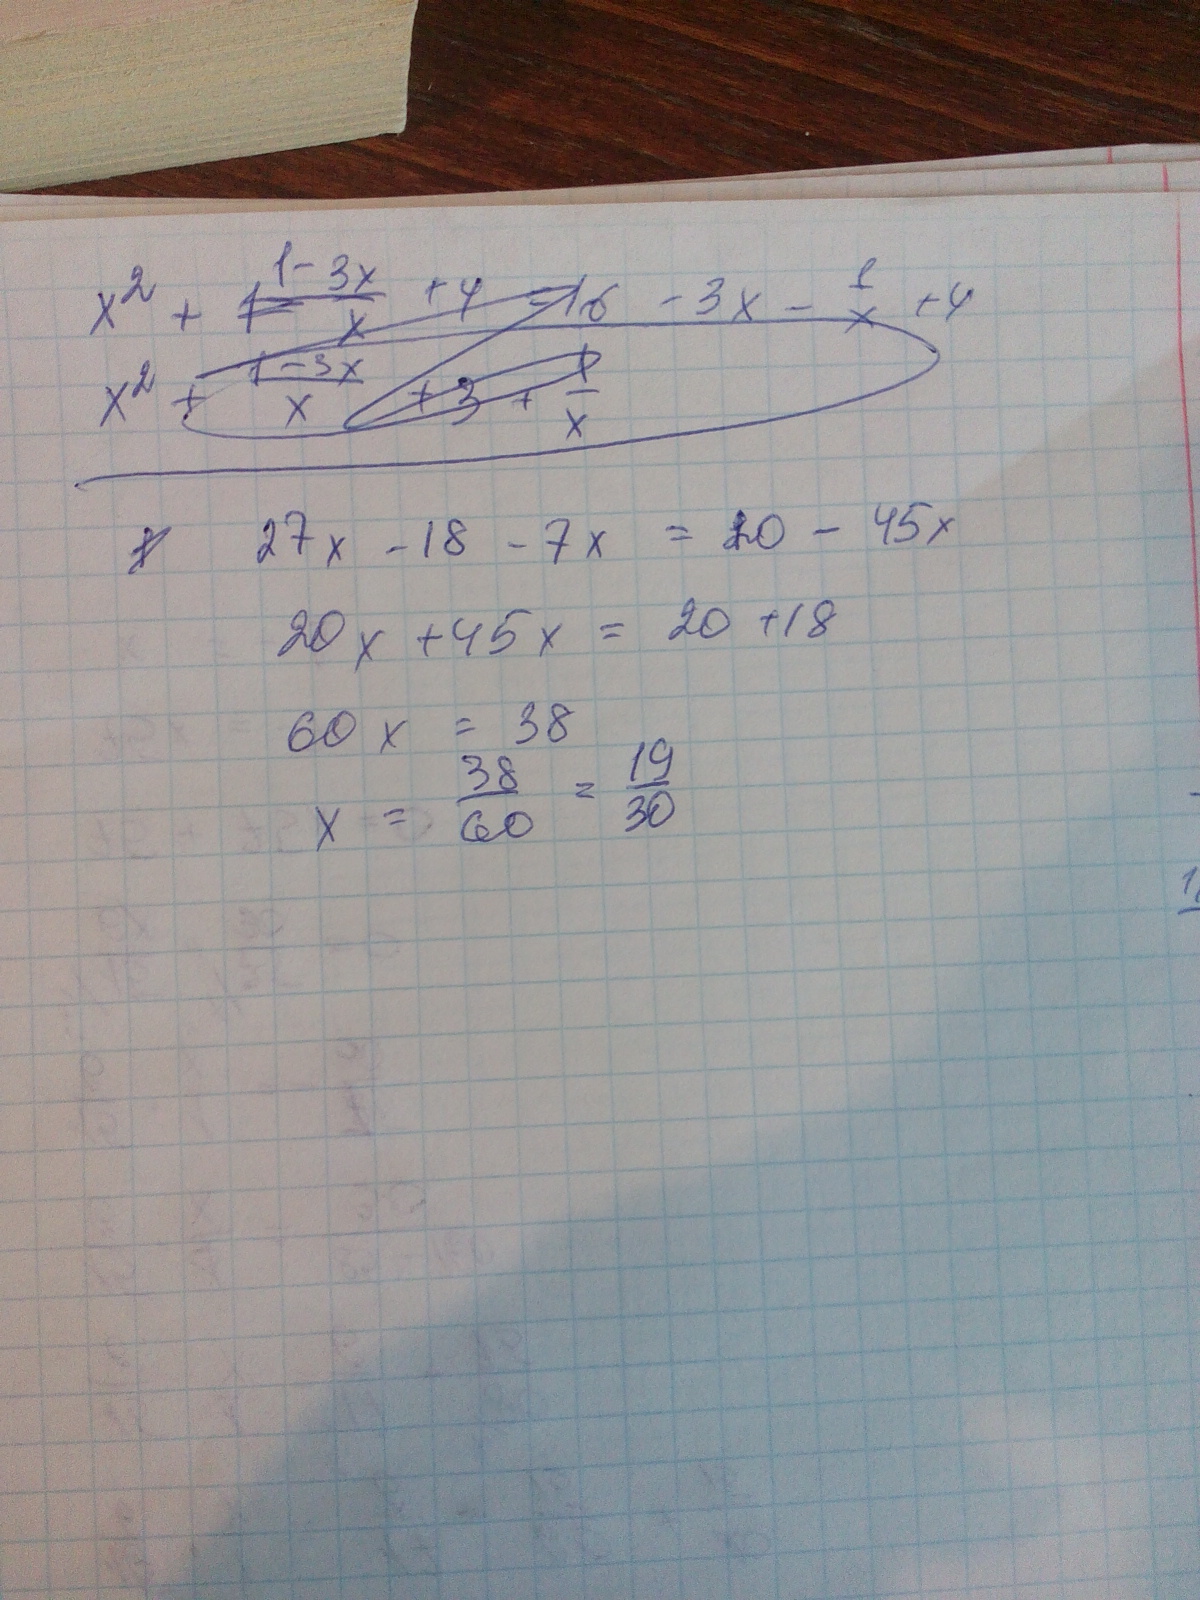 x² + 1-3x/x + 4 = 16 - 3x - 1/x + 4
x² + 1-3x/x + 3 + 1/x
27x - 18 - 7x = 20 - 45x
20x + 45x = 20 + 18
60x = 38
x = 38/60 = 19/30